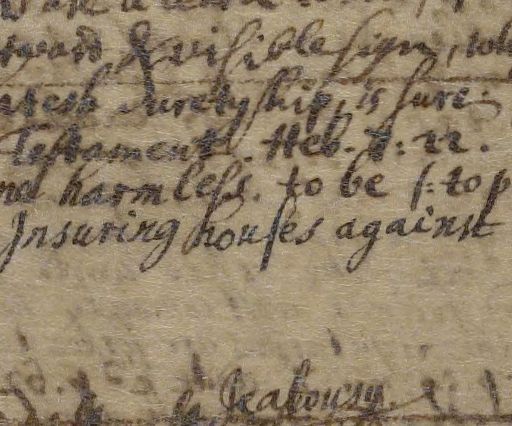 & visible sign, wh
suretyship, is sure
Testament. Heb. 7: 22.
harmless. to be s: to p
Insuring houses against
Jealousy.